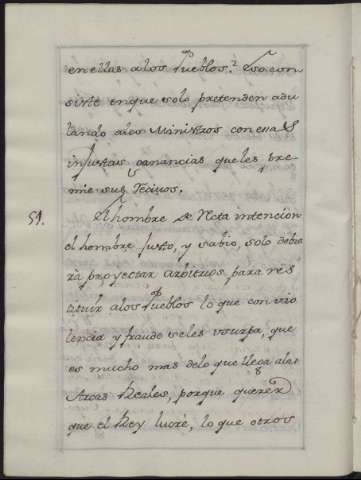 en ellas a los Pueblos? Eso con
siste en que solo pretenden adu
lando a los Ministros con esas
injustas ganancias que les pre
mie sus
51. El hombre de Recta intencion
el hombre Justo, y sabio, solo debie
ra proyectar arbitrios para res
tituir a los Pueblos lo que con vio
lencia y fraude se les vsurpa, que
es mucho mas de lo que llega a las
Arcas Reales, porque querer
que el Rey lucre, lo que otros